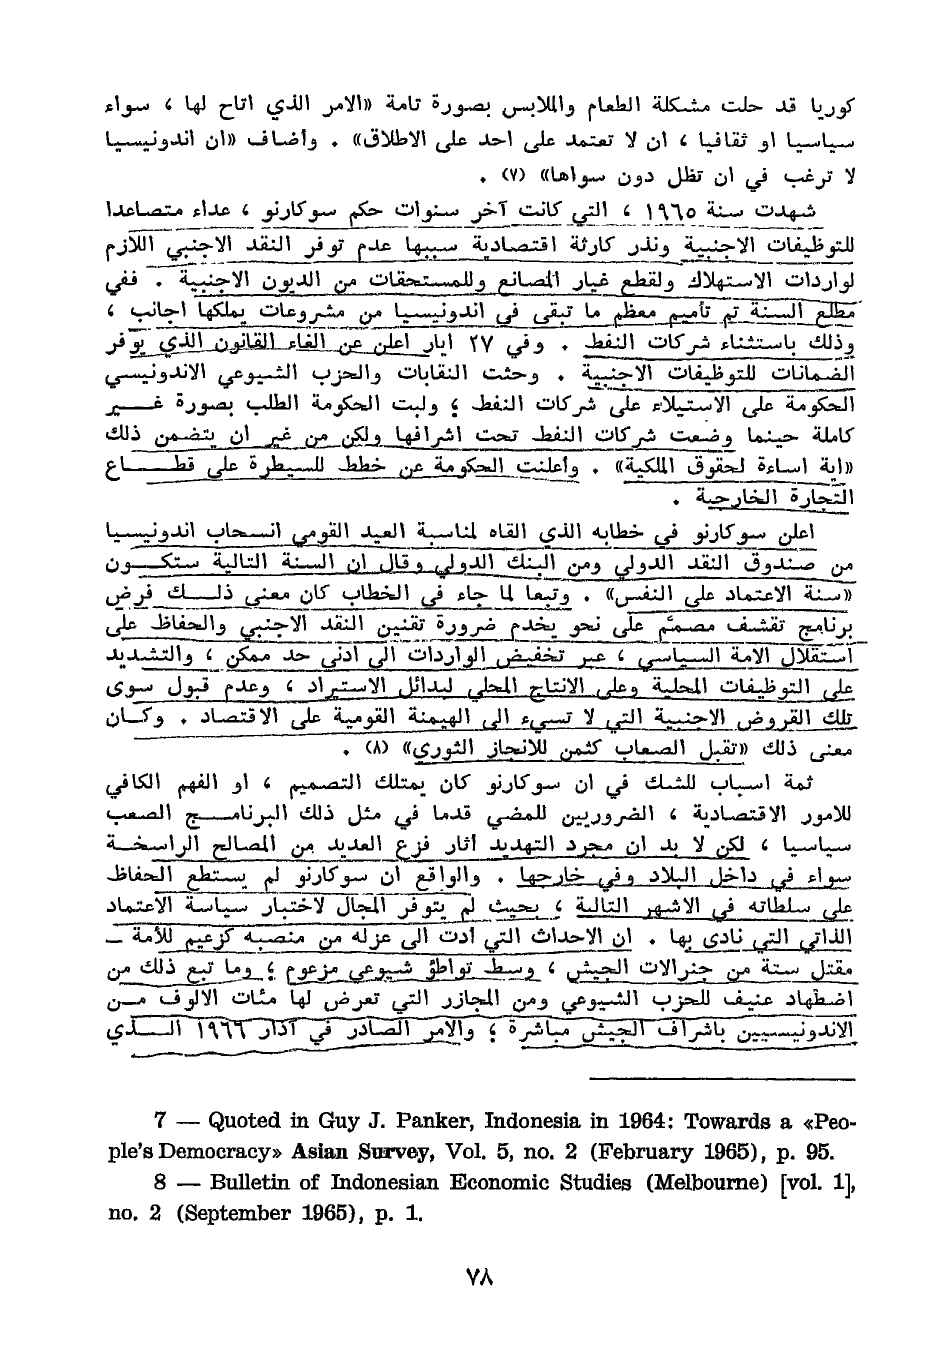 كوريا قد حلت مشكلة الطعام والملابس بصورة تامة «الامر الذي اتاح لها ، سواء
سياسيا او ثقافيا ، ان لا تعتمد على احد على الاطلاق» . وأضاف «ان اندونيسيا
لا ترغب في ان تظل دون سواها» (٧) .
شهدت سنة ١٩٦٥ ، التي كانت آخر سنوات حكم سوكارنو ، عداء متصاعدا
للتوظيفات الاجنبية ونذر كارثة اقتصادية سببها عدم توفر النقد الاجنبي اللازم
لواردات الاستهلاك ولقطع غيار المصانع وللمستحقات من الديون الاجنبية . ففي
مطلع السنة تم تأميم معظم ما تبقى في اندونيسيا من مشروعات يملكها اجانب ،
وذلك باستثناء شركات النفط . وفي ٢٧ ايار اعلن عن الغاء القانون الذي يوفر
الضمانات للتوظيفات الاجنبية . وحثت النقابات والحزب الشيوعي الاندونيسي
الحكومة على الاستيلاء على شركات النفط ؛ ولبت الحكومة الطلب بصورة غـــير
كاملة حينما وضعت شركات النفط تحت اشرافها ولكن من غير ان يتضمن ذلك
«اية اساءة لحقوق الملكية» . وأعلنت الحكومة عن خطط للسيطرة على قطـــاع
التجارة الخارجية .
اعلن سوكارنو في خطابه الذي القاه لمناسبة العيد القومي انسحاب اندونيسيا
من صندوق النقد الدولي ومن البنك الدولي وقال ان السنة التالية ستكـــون
«سنة الاعتماد على النفس» . وتبعا لما جاء في الخطاب كان معنى ذلـــك فرض
برنامج تقشف مصمّم على نحو يخدم ضرورة تقنين النقد الاجنبي والحفاظ على
استقلال الامة السياسي ، عبر تخفيض الواردات الى ادنى حد ممكن ، والتشديد
على التوظيفات المحلية وعلى الانتاج المحلي لبدائل الاستيراد ، وعدم قبول سوى
تلك القروض الاجنبية التي لا تسيء الى الهيمنة القومية على الاقتصاد . وكـان
معنى ذلك «تقبل الصعاب كثمن للانجاز الثوري» (٨) .
ثمة اسباب للشك في ان سوكارنو كان يمتلك التصميم ، او الفهم الكافي
للامور الاقتصادية ، الضروريين للمضي قدما في مثل ذلك البرنامـــج الصعب
سياسيا ، لكن لا بد ان مجرد التهديد أثار فزع العديد من المصالح الراسخـة
سواء في داخل البلاد وفي خارجها . والواقع ان سوكارنو لم يستطع الحفاظ
على سلطاته في الاشهر التالية ، بحيث لم يتوفر المجال لاختبار سياسة الاعتماد
الذاتي التي نادى بها . ان الاحداث التي أدت الى عزله من منصبه كزعيم للأمة ــ
مقتل ستة من جنرالات الجيش ، وسط تواطؤ شيوعي مزعوم ؛ وما تبع ذلك من
اضطهاد عنيف للحزب الشيوعي ومن المجازر التي تعرض لها مئات الالوف مـــن
الاندونيسيين باشراف الجيش مباشرة ؛ والامر الصادر في آذار ١٩٦٦ الـــذي
7 — Quoted in Guy J. Panker, Indonesia in 1964: Towards a «Peo-
ple's Democracy» Asian Survey, Vol. 5, no. 2 (February 1965), p. 95.
8 — Bulletin of Indonesian Economic Studies (Melbourne) [vol. 1],
no. 2 (September 1965), p. 1.
٧٨